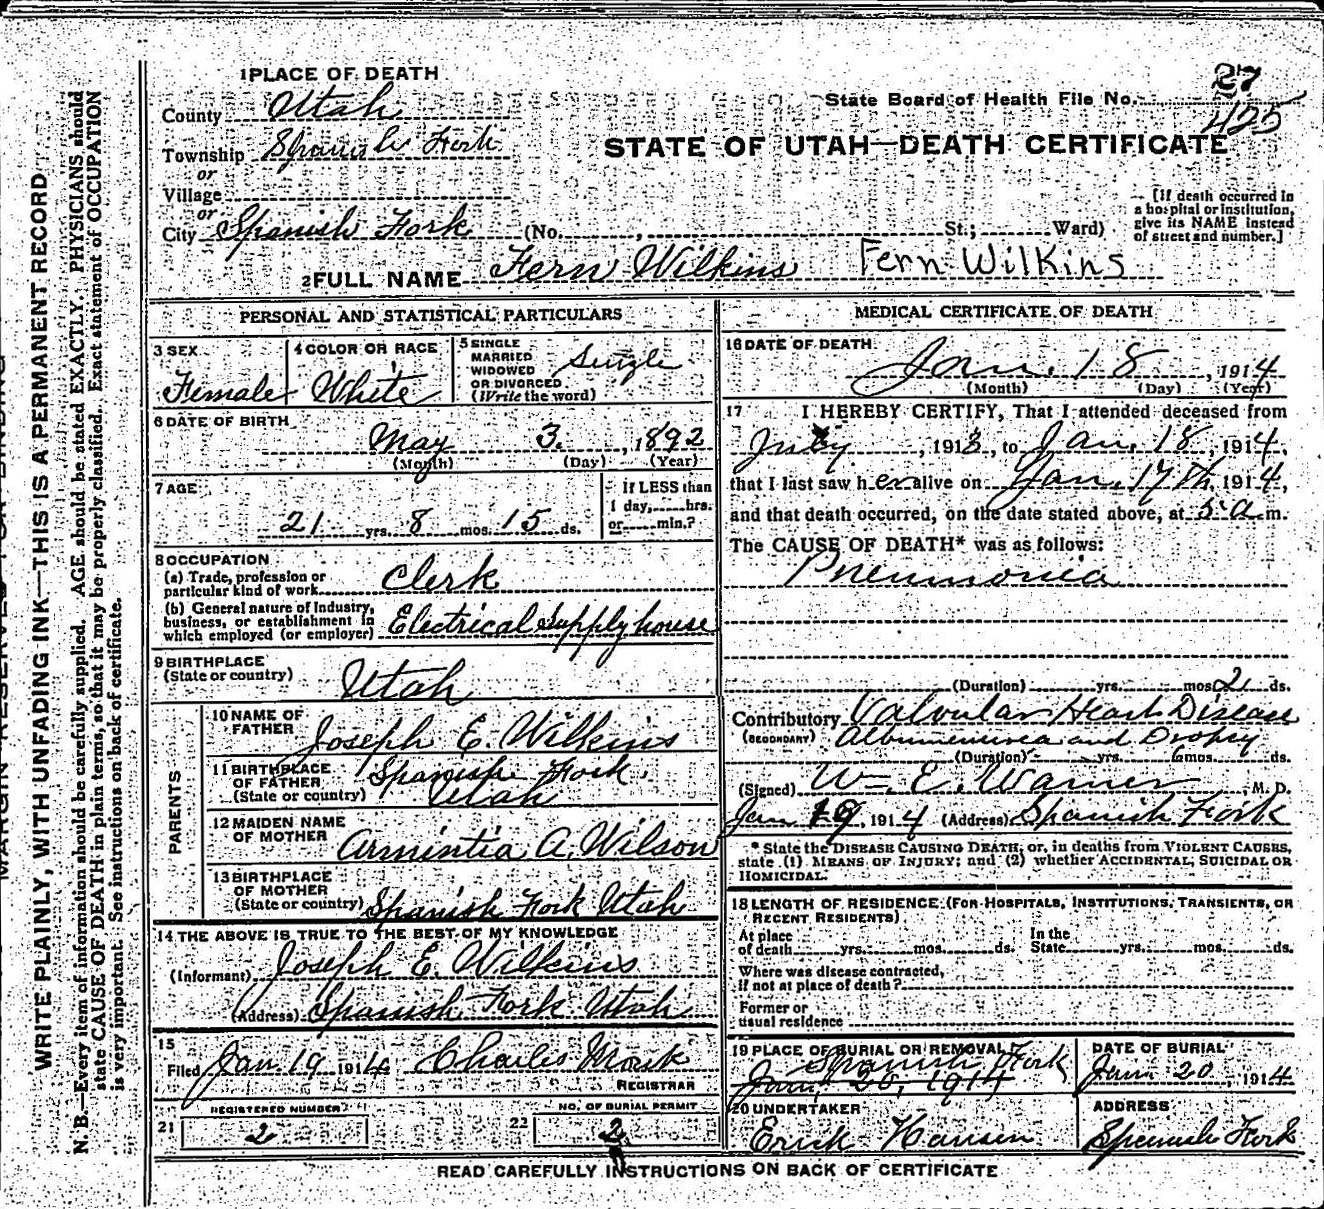 1 PLACE OF DEATH
County Utah
Township Spanish Fork
or
Village
or
City Spanish Fork (No. , St.; Ward)
State Board of Health File No. 27
425
STATE OF UTAH—DEATH CERTIFICATE
[If death occurred in
a hospital or institution,
give its NAME instead
of street and number.]
2 FULL NAME Fern Wilkins Fern Wilkins
PERSONAL AND STATISTICAL PARTICULARS
3 SEX
Female
4 COLOR OR RACE
White
5 SINGLE
MARRIED
WIDOWED
OR DIVORCED
(Write the word)
Single
6 DATE OF BIRTH
May 3. , 1892
(Month) (Day) (Year)
7 AGE
21 yrs. 8 mos. 15 ds.
If LESS than
1 day, hrs.
or min.?
8 OCCUPATION
(a) Trade, profession or
particular kind of work Clerk
(b) General nature of industry,
business, or establishment in
which employed (or employer) Electrical supply house
9 BIRTHPLACE
(State or country)
Utah
PARENTS
10 NAME OF
FATHER
Joseph E. Wilkins
11 BIRTHPLACE
OF FATHER
(State or country)
Spanish Fork.
Utah
12 MAIDEN NAME
OF MOTHER
Armintia A. Wilson
13 BIRTHPLACE
OF MOTHER
(State or country)
Spanish Fork Utah
14 THE ABOVE IS TRUE TO THE BEST OF MY KNOWLEDGE
(Informant) Joseph E. Wilkins
(Address) Spanish Fork Utah
15
Filed Jan. 19 1914 Charles Monk
REGISTRAR
21
REGISTERED NUMBER
2
22
NO. OF BURIAL PERMIT
2
MEDICAL CERTIFICATE OF DEATH
16 DATE OF DEATH
Jan. 18 , 1914
(Month) (Day) (Year)
17 I HEREBY CERTIFY, That I attended deceased from
July , 1913, to Jan. 18, 1914,
that I last saw her alive on Jan. 17th, 1914,
and that death occurred, on the date stated above, at 5 a m.
The CAUSE OF DEATH* was as follows:
Pneumonia
(Duration) yrs. mos. 2 ds.
Contributory Valvular Heart Disease
(SECONDARY) Albumenurea and Dropsy
(Duration) yrs. 6 mos. ds.
(Signed) W. E. Warner M. D.
Jan 19, 1914 (Address) Spanish Fork
* State the DISEASE CAUSING DEATH, or, in deaths from VIOLENT CAUSES,
state (1) MEANS OF INJURY; and (2) whether ACCIDENTAL, SUICIDAL OR
HOMICIDAL.
18 LENGTH OF RESIDENCE (FOR HOSPITALS, INSTITUTIONS, TRANSIENTS, OR
RECENT RESIDENTS)
At place
of death yrs. mos. ds.
In the
State yrs. mos. ds.
Where was disease contracted,
if not at place of death?
Former or
usual residence
19 PLACE OF BURIAL OR REMOVAL
Spanish Fork
Jan. 20, 1914
DATE OF BURIAL
Jan 20 , 1914
20 UNDERTAKER
Erick Hansen
ADDRESS
Spanish Fork
READ CAREFULLY INSTRUCTIONS ON BACK OF CERTIFICATE
WRITE PLAINLY, WITH UNFADING INK—THIS IS A PERMANENT RECORD
N. B.—Every item of information should be carefully supplied. AGE should be stated EXACTLY. PHYSICIANS should
state CAUSE OF DEATH in plain terms, so that it may be properly classified. Exact statement of OCCUPATION
is very important. See instructions on back of certificate.